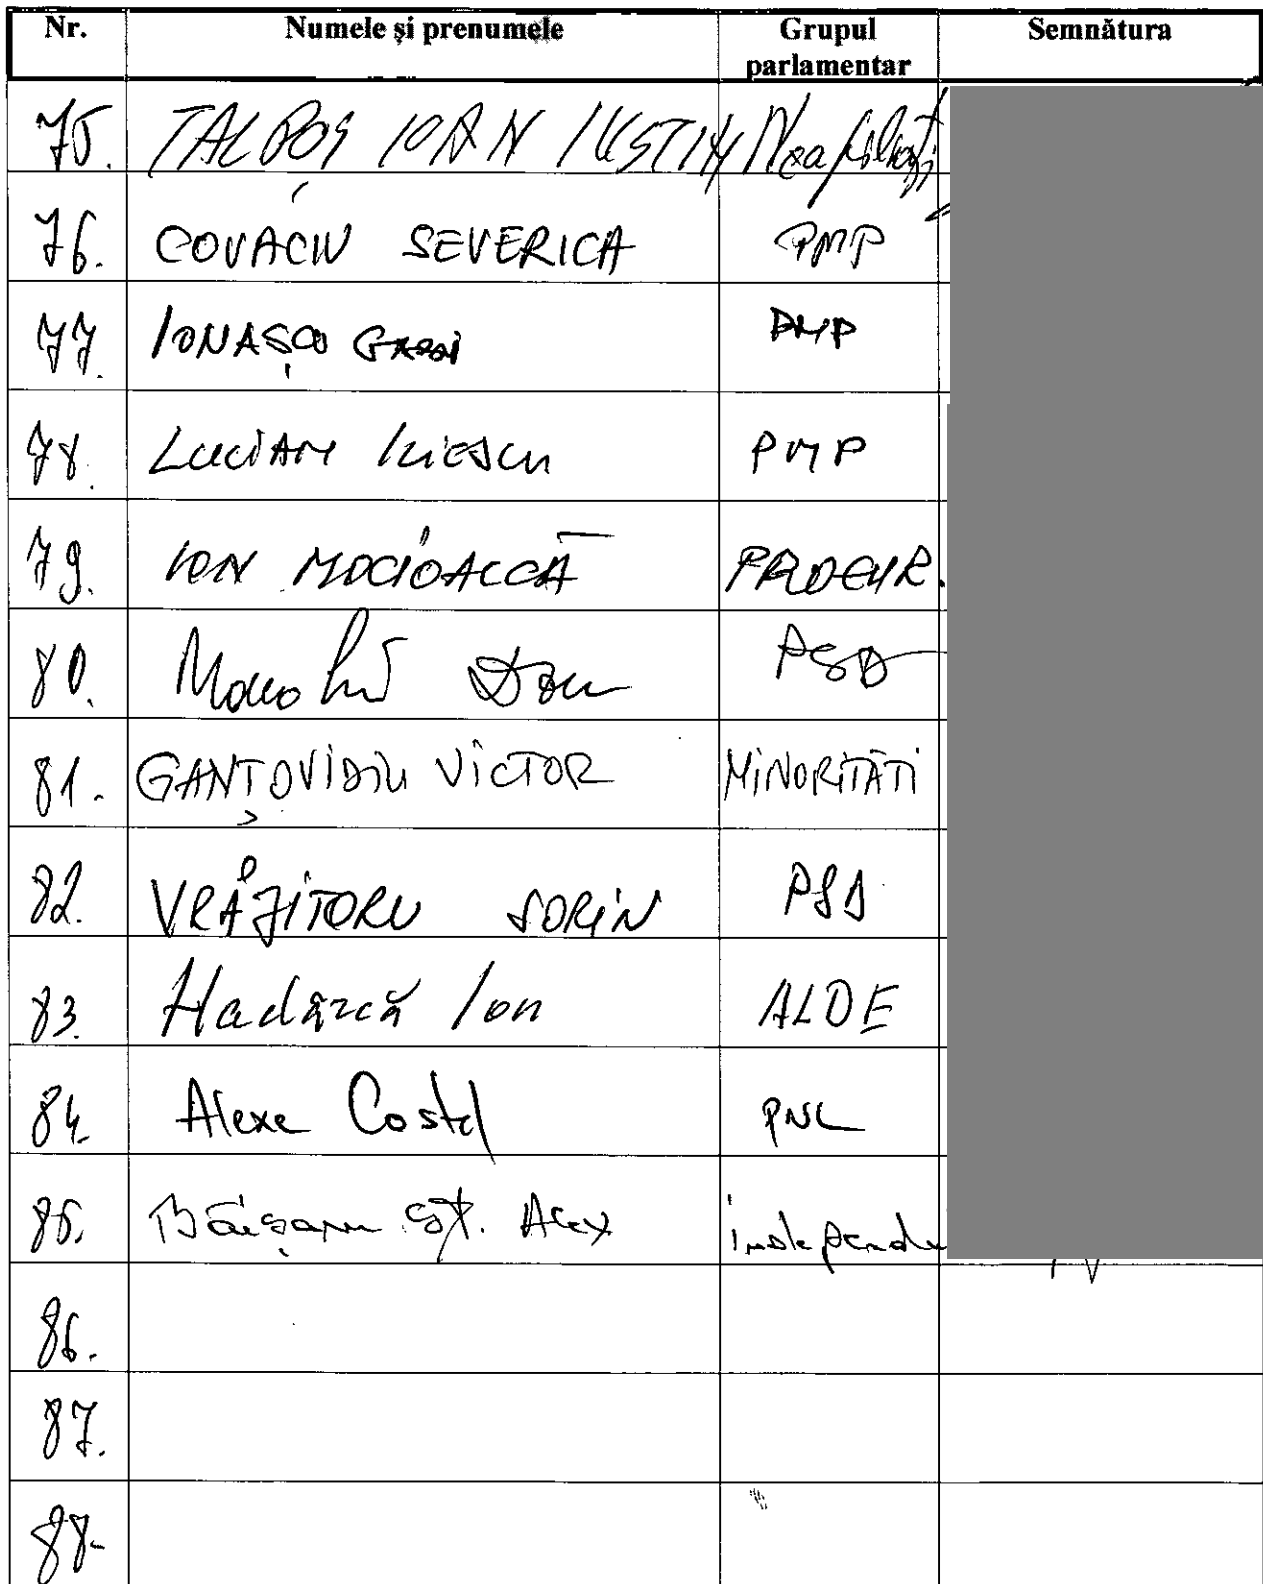 Nr. Numele și prenumele Grupul parlamentar Semnătura
75. TALPOȘ IOAN IUSTIN Neafiliați
76. COVACIU SEVERICA PMP
77. IONAȘCU PMP
78. LUCIAN ILIESCU PMP
79. ION MOCIOALCĂ PROEUR.
80. Manoliu Dan PSD
81. GANȚ OVIDIU VICTOR MINORITĂȚI
82. VRĂJITORU SORIN PSD
83. Hadârcă Ion ALDE
84. Alexe Costel PNL
85. Băișanu Șt. Alex independe
86.
87.
88.